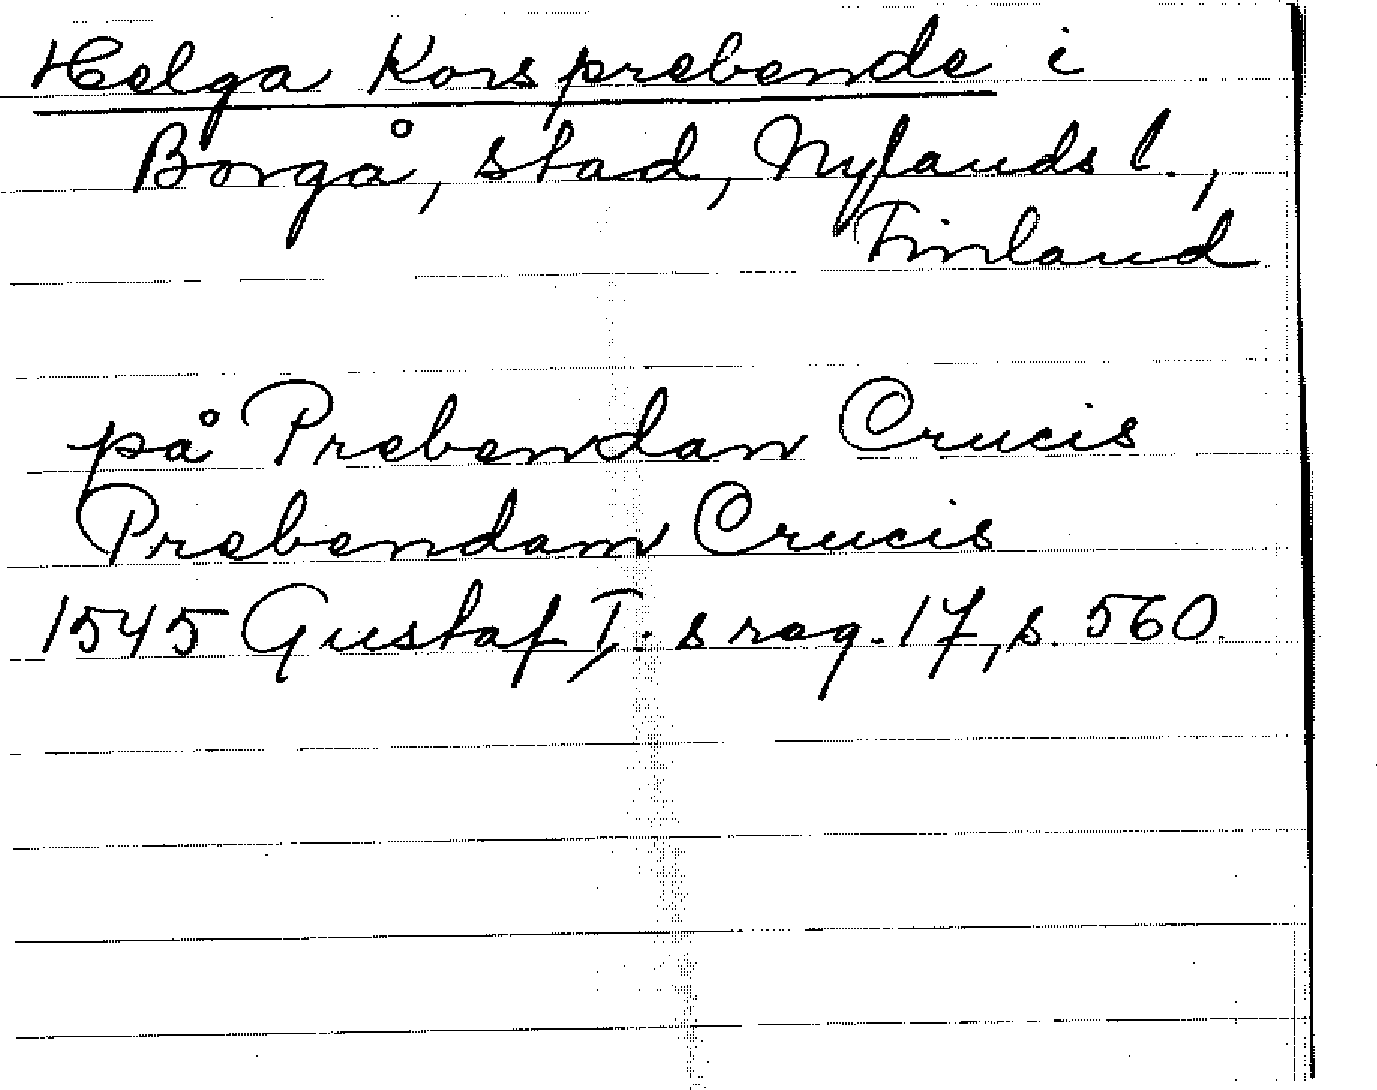 Helga Kors prebende i
Borgå, stad, Nylands l.,
Finland
på Prebendan Crucis
Prebendam Crucis
1545 Gustaf I:s reg. 17, s. 560.